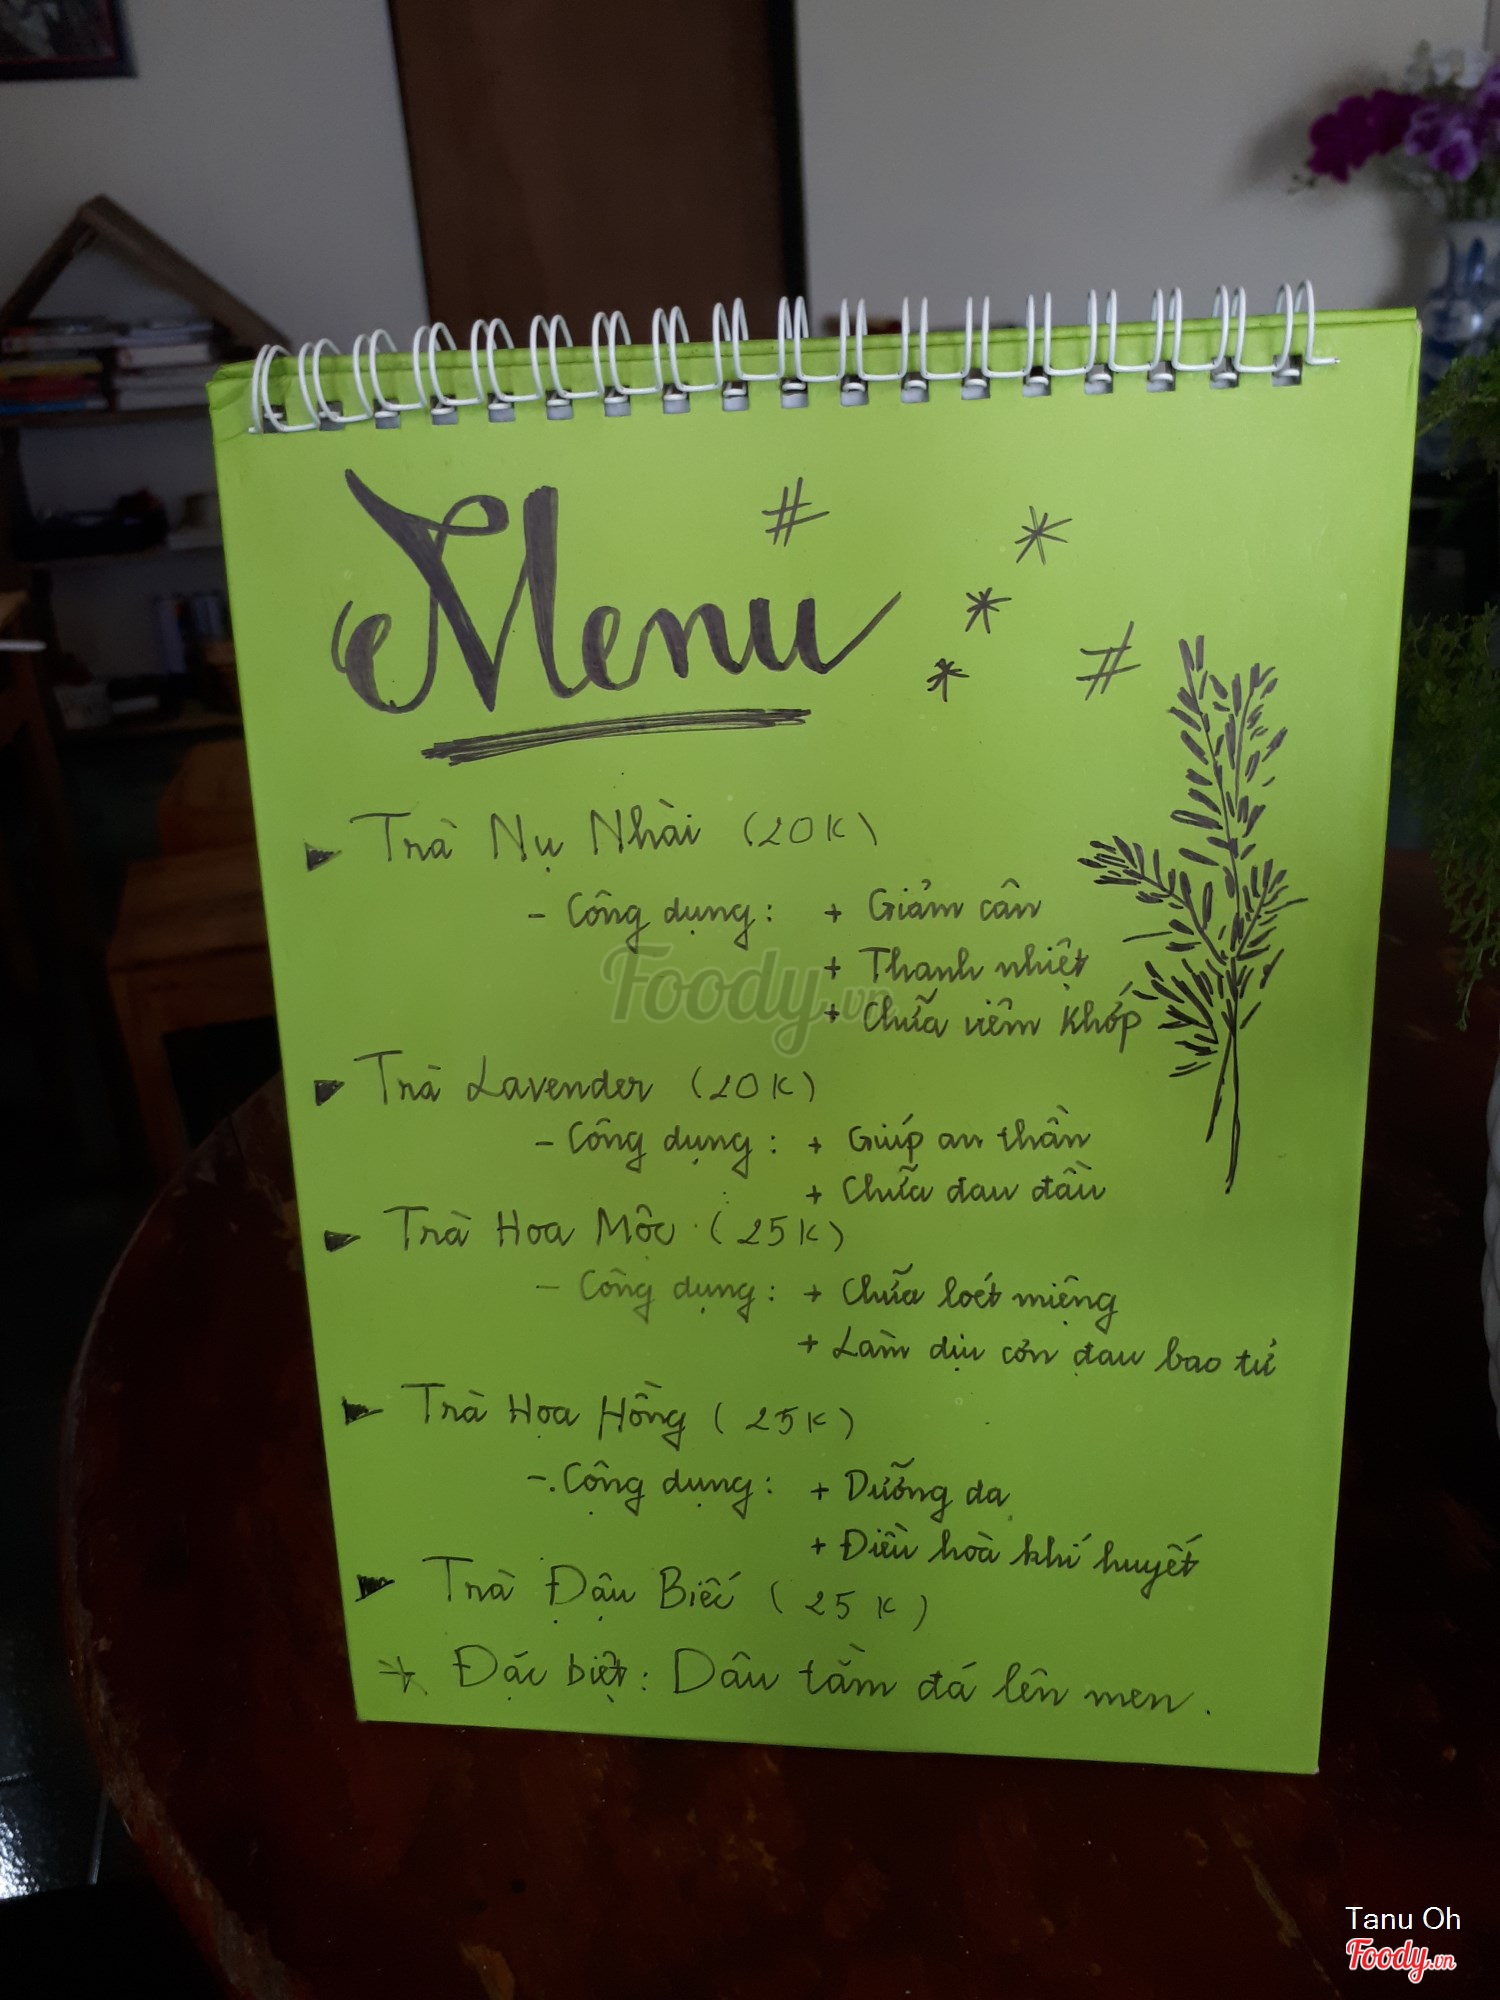 Menu
Trà Nụ Nhài (20K)
- Công dụng: + Giảm cân
+ Thanh nhiệt
+ Chữa viêm khớp
Trà Lavender (20K)
- Công dụng: + Giúp an thần
+ Chữa đau đầu
Trà Hoa Mộc (25K)
- Công dụng: + Chữa loét miệng
+ Làm dịu cơn đau bao tử
Trà Hoa Hồng (25K)
- Công dụng: + Dưỡng da
+ Điều hoà khí huyết
Trà Đậu Biếc (25K)
* Đặc biệt: Dâu tằm đá lên men.
Foody.vn
Tanu Oh
Foody.vn